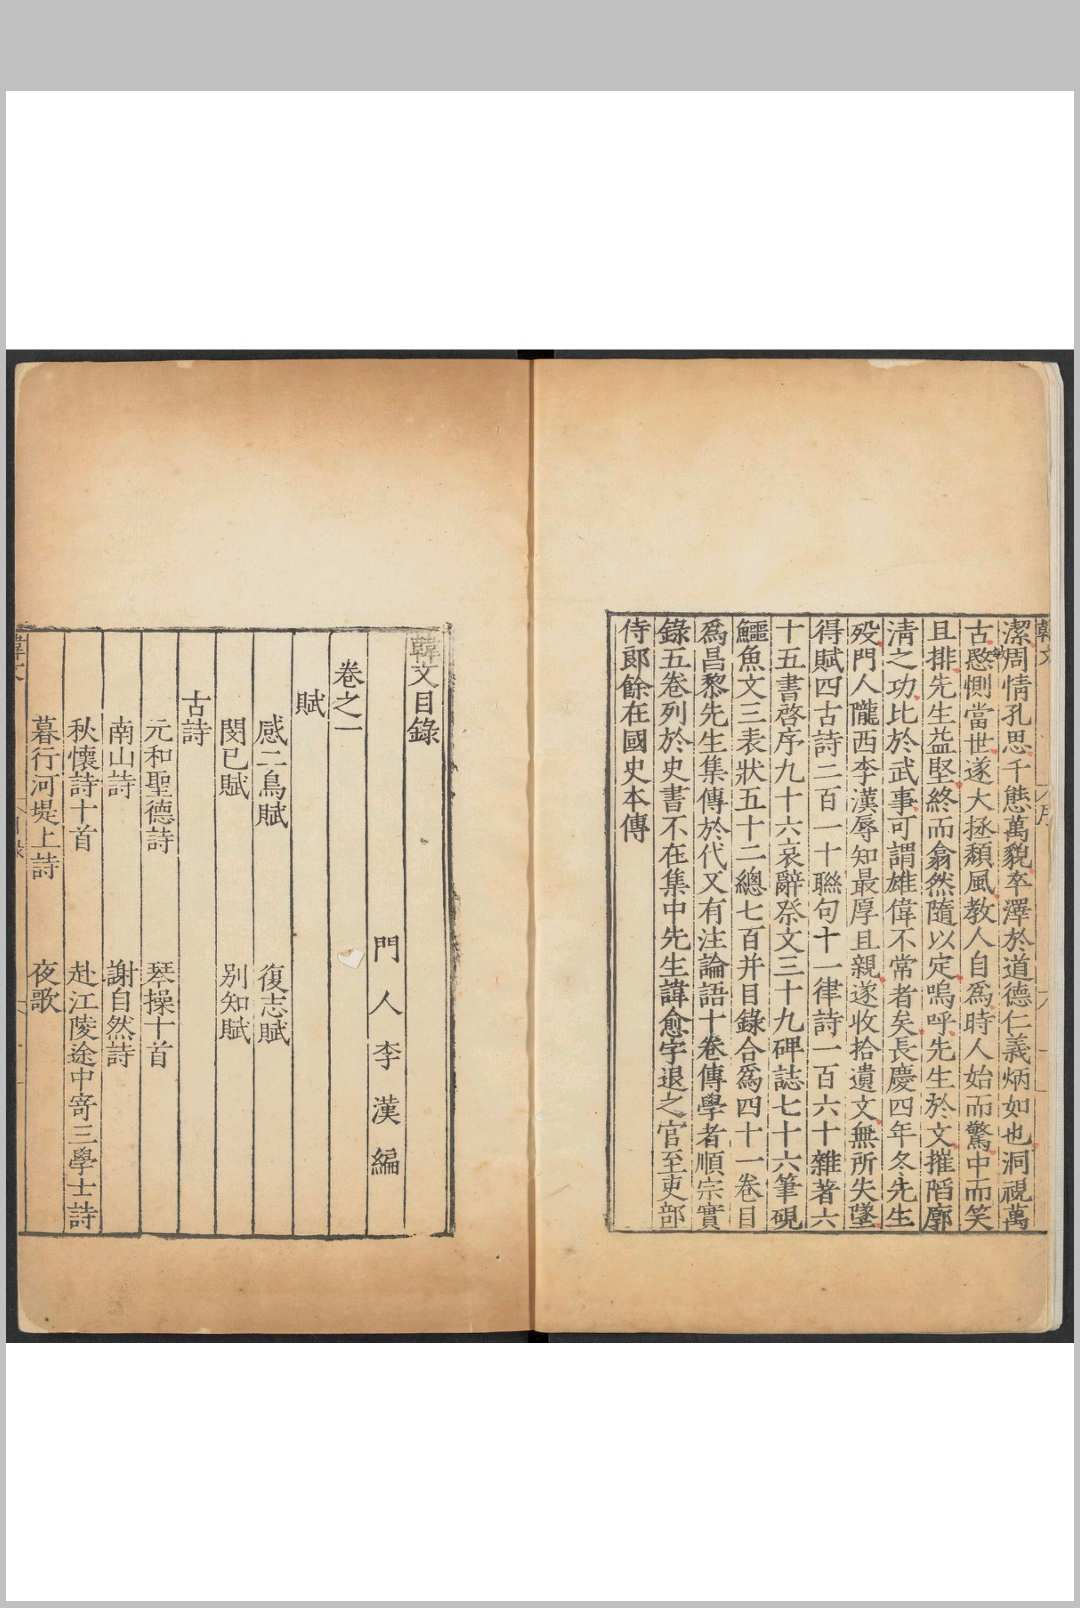 潔周情孔思千態萬貌卒澤於道德仁義炳如也洞視萬
古愍惻當世遂大拯頹風教人自爲時人始而驚中而笑
且排先生益堅終而翕然隨以定嗚呼先生於文摧陷廓
清之功比於武事可謂雄偉不常者矣長慶四年冬先生
歿門人隴西李漢辱知最厚且親遂收拾遺文無所失墜
得賦四古詩二百一十聮句十一律詩一百六十雜著六
十五書啓序九十六哀辭祭文三十九碑誌七十六筆硯
鱷魚文三表狀五十二總七百并目錄合爲四十一卷目
爲昌黎先生集傳於代又有注論語十卷傳學者順宗實
錄五卷列於史書不在集中先生諱愈字退之官至吏部
侍郎餘在國史本傳
韓文目錄
門人李漢編
卷之一
賦
感二鳥賦 復志賦
閔已賦 别知賦
古詩
元和聖德詩 琴操十首
南山詩 謝自然詩
秋懷詩十首 赴江陵途中寄三學士詩
暮行河堤上詩 夜歌
韓文